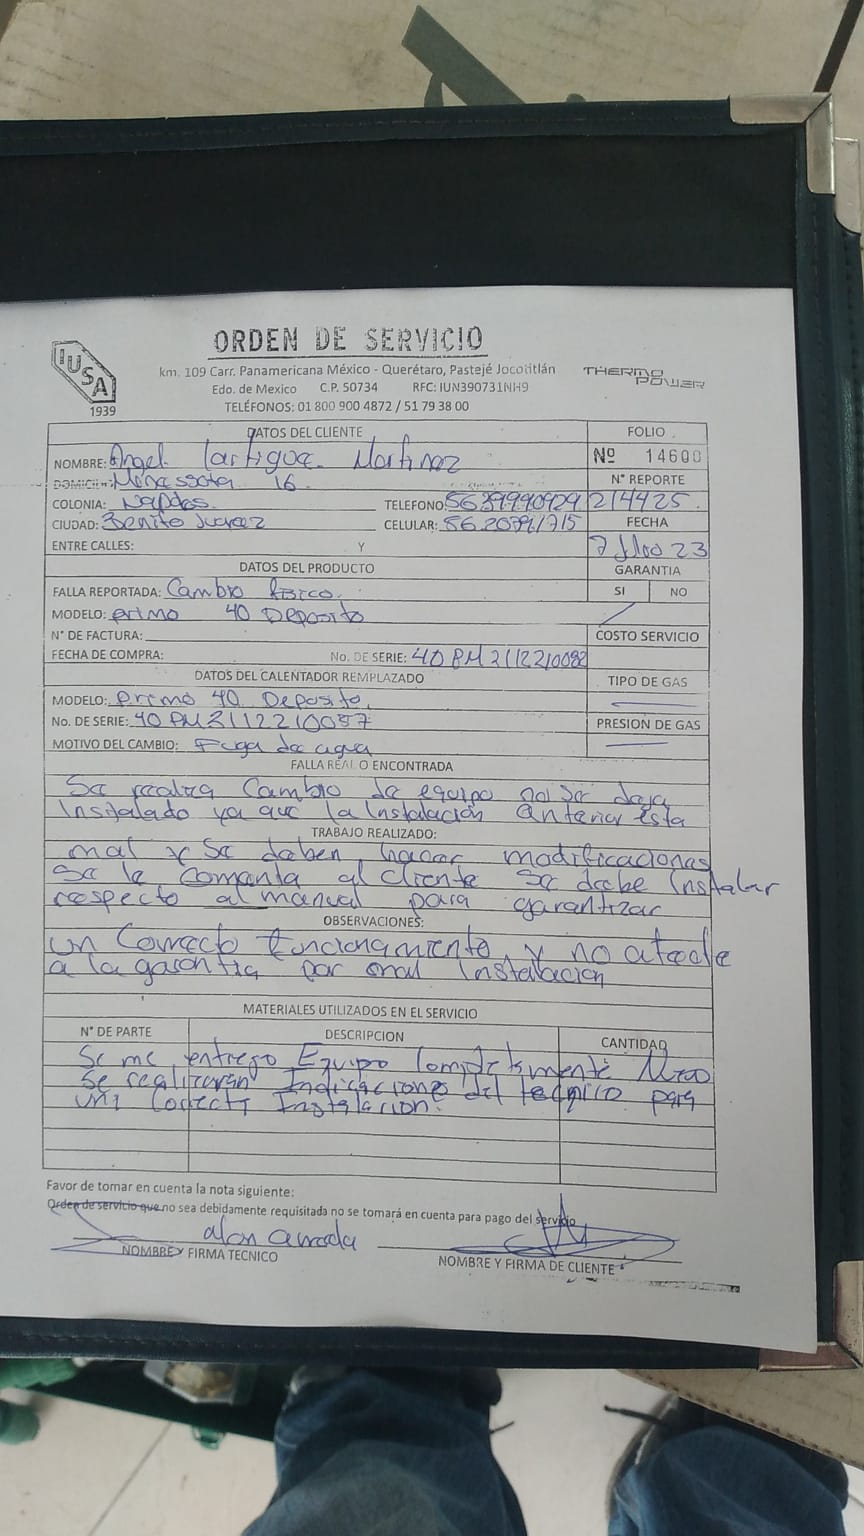 ORDEN DE SERVICIO
IUSA
1939
km. 109 Carr. Panamericana México - Querétaro, Pastejé Jocotitlán
THERMO POWER
Edo. de Mexico C.P. 50734 RFC: IUN390731NH9
TELÉFONOS: 01 800 900 4872 / 51 79 38 00
DATOS DEL CLIENTE FOLIO
NOMBRE: Angel Martinez Nº 14600
DOMICILIO: 16 N° REPORTE
COLONIA: Napoles TELEFONO: 5639990929 214425
CIUDAD: Benito Juarez CELULAR: FECHA
ENTRE CALLES: Y 23
DATOS DEL PRODUCTO GARANTIA
FALLA REPORTADA: Cambio fisico. SI NO
MODELO: primo 40 Deposito
N° DE FACTURA: COSTO SERVICIO
FECHA DE COMPRA: No. DE SERIE:
DATOS DEL CALENTADOR REMPLAZADO TIPO DE GAS
MODELO: primo 40 Deposito
No. DE SERIE: 40 PM 2112210087 PRESION DE GAS
MOTIVO DEL CAMBIO: Fuga de agua
FALLA REAL O ENCONTRADA
Se realiza Cambio de equipo no se deja
Instalado ya que la Instalación anterior esta
TRABAJO REALIZADO:
mal y Se deben hacer modificaciones
Se le comenta al cliente se debe Instalar
respecto al manual para garantizar
OBSERVACIONES:
un Correcto funcionamiento y no afecte
a la garantia por mal Instalacion
MATERIALES UTILIZADOS EN EL SERVICIO
N° DE PARTE DESCRIPCION CANTIDAD
Se me entrego Equipo Completamente
Se realizaran Indicaciones del tecnico para
una correcta Instalacion.
Favor de tomar en cuenta la nota siguiente:
Orden de servicio que no sea debidamente requisitada no se tomará en cuenta para pago del servicio
NOMBRE Y FIRMA TECNICO NOMBRE Y FIRMA DE CLIENTE